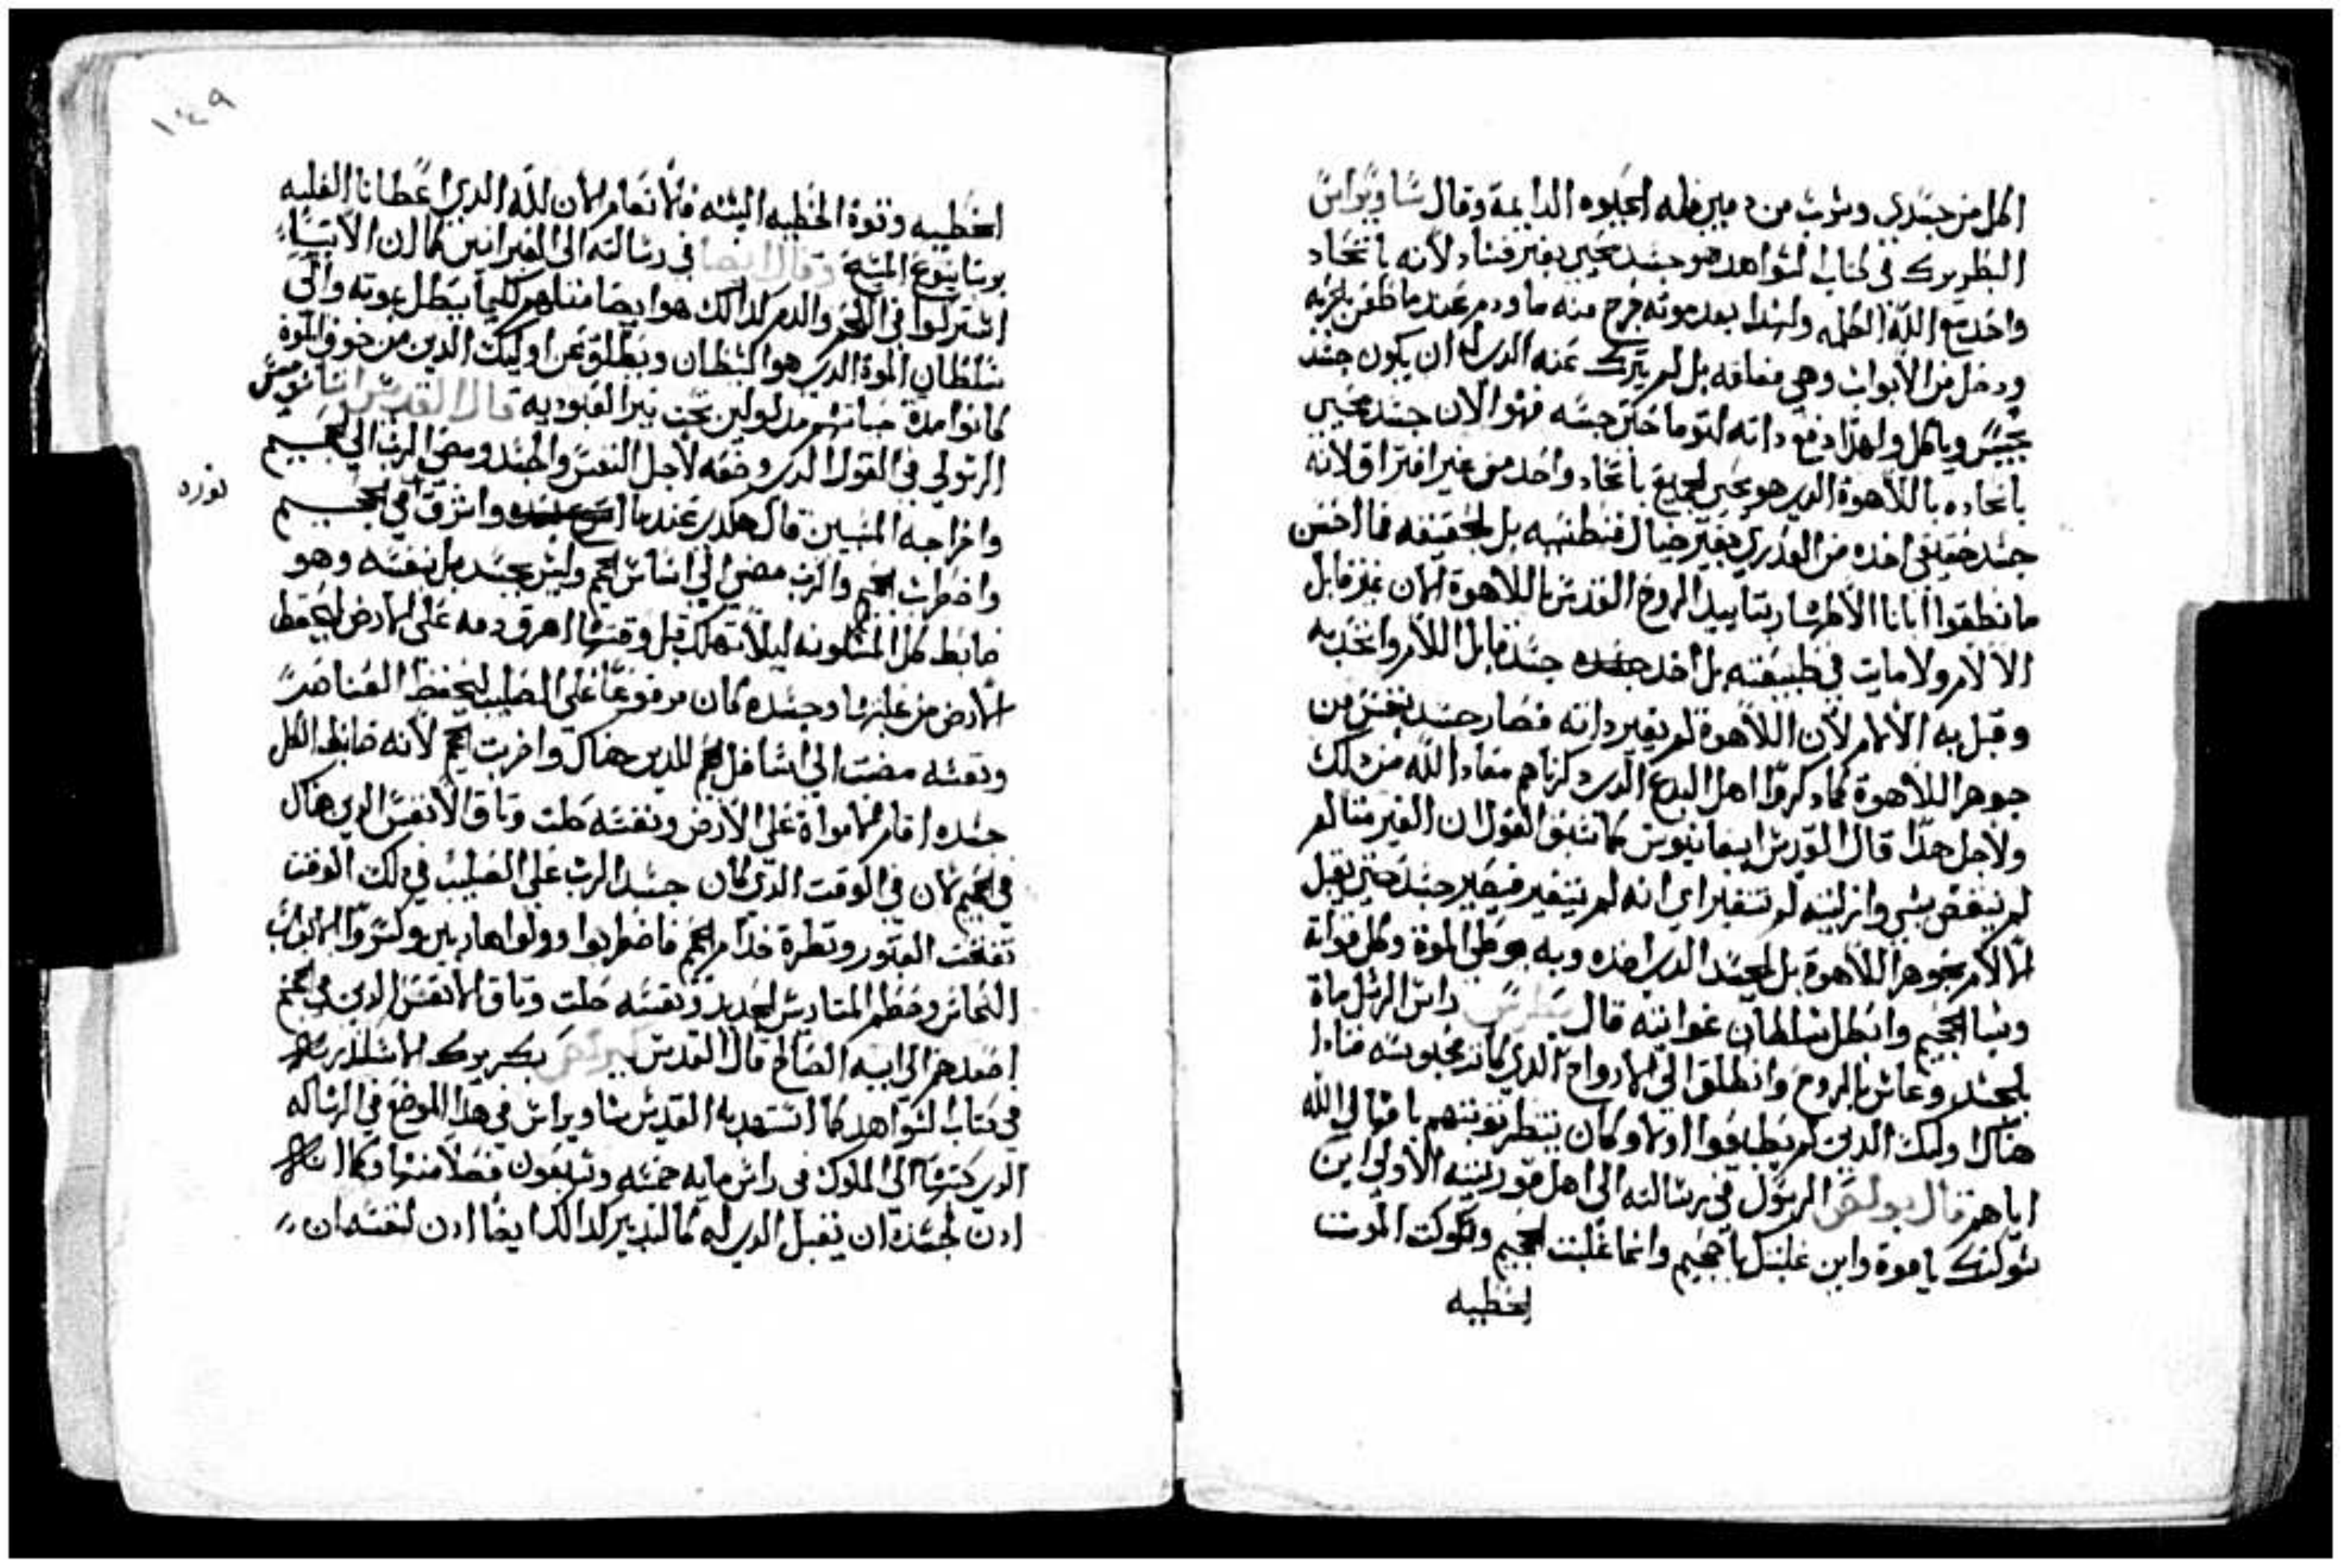 اكل من جسدي وشرب من دمي فله الحيوه الدايمة وقال ساويرس
البطريرك في كتاب الشواهد هو جسد محيي بغير فساد لانه باتحاد
واحد مع الله الكلمه ولهذا بعد موته خرج منه ما ودم عندما طعن بحربه
ودخل من الابواب وهي مغلقه بل لم يترك عنه الدي له ان يكون جسد
يجس وياكل ولهدا دفع داته لتوما حتى جسه فهو الان جسد محيي
باتحاده باللاهوة الدي هو محيي الجميع باتحاد واحد من غير افتراق لانه
جسد حقيقي اخده من العدري بغير خيال فنطنه بل بالحقيقه فما احسن
ما نطقوا ابانا الاطهار بتاييد الروح القدس باللاهوة لان غير قابل
الالام ولا مايت في طبيعته بل اخد جسد قابل اللالام واتحد به
وقبل به الالام لان اللاهوة لم يغير داته فصار جسد بنفس من
جوهر اللاهوة كما دكروا اهل البدع الدي دكرناهم معاد الله من دلك
ولاجل هدا قال القديس ابيفانيوس كما سبق القول ان الغير متالم
لم ينقص بشي وازليته لم تتغير اي انه لم يتغير فيصير جسد حتي يقبل
الالام بجوهر اللاهوة بل بالجسد الدي اخده وبه وطي الموة وكل قواته
وسبا الجحيم وابطل سلطان غوايته قال بطرس راس الرسل ماة
بالجسد وعاش بالروح وانطلق الي الارواح الدي كانة محبوسه فنادا
هناك اوليك الدين لم يطيعوا اولا وكان ينتظر توبتهم بامهال الله
اياهم قال بولص الرسول في رسالته الي اهل قورنتيه الاولي اين
شوكتك يا موة واين غلبتك يا جحيم وانما غلبت الجحيم وشوكت الموت
الخطيه
١٤٩
الخطيه وقوة الخطيه السنه فالانعام الان لله الدي اعطانا الغلبه
بربنا يسوع المسيح وقال ايضا في رسالته الي العبرانيين كما ان الابنا
اشتركوا في اللحم والدم كدالك هو ايضا مثلهم لكيما يبطل بموته والي
سلطان الموة الدي هو الشيطان ويطلق عن اوليك الدين من خوف الموة
كانوا مدة حياتهم مدلولين تحت نير العبوديه قال القديس اتناسيوس
الرسولي في القول الدي وضعه لاجل النفس والجسد ومضي الرب الي الجحيم
واخراجه المسبيين قال هكدي عندما اشرق نوره واشرق في الجحيم
نوره
واضطرب الجحيم والرب مضي الي اساس الجحيم وليس بجسد بل بنفسه وهو
ضابط كل المسكونه ليلا تهلك قبل وقتها اهرق دمه علي الارض ليحفظ
الارض من عليها وجسده كان مرفوعا علي الصليب ليحفظ العناصر
ونفسه مضت الي اسافل الجحيم للدين هناك واخربت الجحيم لانه ضابط الكل
جسده اقام الامواة علي الارض ونفسه حلت وتاق الانفس الدي هناك
في الجحيم لان في الوقت الدي كان جسد الرب علي الصليب في دلك الوقت
تفتحت القبور ونظرة خدام الجحيم فاضطربوا وولوا هاربين وكسروا الابواب
النحاس وحطم المتاريس الحديد ونفسه حلت وتاق الانفس الدين في الجحيم
اصعدهم الي ابيه الصالح قال القديس بطريرك الاسكندريه
في كتاب الشواهد كما استشهد به القديس ساويرس في هدا الموضع في الرساله
الدي كتبها الي الملوك في راس مايه خمسه وتسعون فصلا منها وكما انه
ادن لجسده ان يقبل الدي له كالتدبير كدالك ايضا ادن لنفسه ان